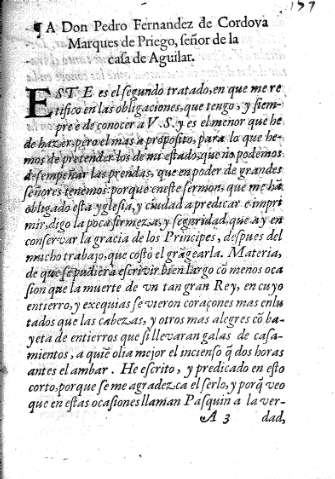 157
¶ A Don Pedro Fernandez de Cordova
Marques de Priego, señor de la
casa de Aguilar.
ESTE es el segundo tratado, en que me re
tifico en las obligaciones, que tengo, y siem-
pre è de conocer a V.S. y es el menor que he
de hazer, pero el mas a proposito, para lo que he-
mos de pretender los de mi estado, que no podemos
desempeñar las prendas, que en poder de grandes
señores tenemos: porque en este sermon, que me hā
obligado esta yglesia, y ciudad a predicar e impri
mir, digo la poca firmeza, y seguridad, que ay en
conservar la gracia de los Principes, despues del
mucho trabajo, que costò el grāgearla. Materia,
de que se pudiera escrivir bien largo cō menos oca
sion que la muerte de vn tan gran Rey, en cuyo
entierro, y exequias se vieron coraçones mas enlu
tados que las cabezas, y otros mas alegres cō ba-
yeta de entierros que si llevaran galas de casa-
mientos, a quiē olia mejor el incienso q̄ dos horas
antes el ambar. He escrito, y predicado en esto
corto, porque se me agradezca el serlo, y porq̄ veo
que en estas ocasiones llaman Pasquin a la ver-
A 3 dad,